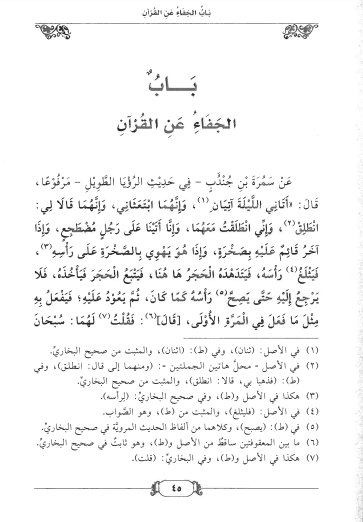 بَابُ الجَفَاءِ عَنِ القُرْآنِ
بَــابٌ
الجَفَاءُ عَنِ القُرْآنِ
عَنْ سَمُرَةَ بْنِ جُنْدُبٍ - فِي حَدِيثِ الرُّؤْيَا الطَّوِيلِ - مَرْفُوعًا،
قَالَ: «أَتَانِي اللَّيْلَةَ آتِيَانِ (١)، وَإِنَّهُمَا ابْتَعَثَانِي، وَإِنَّهُمَا قَالَا لِي:
انْطَلِقْ (٢)، وَإِنِّي انْطَلَقْتُ مَعَهُمَا، وَإِنَّا أَتَيْنَا عَلَى رَجُلٍ مُضْطَجِعٍ، وَإِذَا
آخَرُ قَائِمٌ عَلَيْهِ بِصَخْرَةٍ، وَإِذَا هُوَ يَهْوِي بِالصَّخْرَةِ عَلَى رَأْسِهِ (٣)،
فَيَثْلَغُ (٤) رَأْسَهُ، فَيَتَدَهْدَهُ الْحَجَرُ هَا هُنَا، فَيَتْبَعُ الْحَجَرَ فَيَأْخُذُهُ، فَلَا
يَرْجِعُ إِلَيْهِ حَتَّى يَصِحَّ (٥) رَأْسُهُ كَمَا كَانَ، ثُمَّ يَعُودُ عَلَيْهِ؛ فَيَفْعَلُ بِهِ
مِثْلَ مَا فَعَلَ فِي الْمَرَّةِ الْأُولَى، [قَالَ] (٦): فَقُلْتُ (٧) لَهُمَا: سُبْحَانَ
(١) في الأصل: (ثنان)، وفي (ط): (اثنان)، والمثبت من صحيح البخاريِّ.
(٢) في الأصل - محلَّ هاتين الجملتين -: (ومنهما إلى قال: انطلق)، وفي
(ط): (فذهبا بي، قالا: انطلق)، والمثبت من صحيح البخاريِّ.
(٣) هكذا في الأصل و(ط)، وفي صحيح البخاريِّ: (لرأسه).
(٤) في الأصل: (فليثلغ)، والمثبت من (ط)، وهو الصَّواب.
(٥) في (ط): (يصبح)، وكلاهما من ألفاظ الحديث المرويَّة في صحيح البخاريِّ.
(٦) ما بين المعقوفتين ساقطٌ من الأصل و(ط)، وهو ثابتٌ في صحيح البخاريِّ.
(٧) هكذا في الأصل و(ط)، وفي البخاريِّ: (قلت).
٤٥